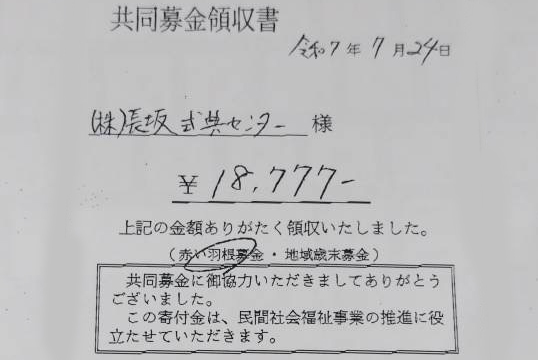 共同募金領収書
令和7年7月24日
(株)長坂式典センター 様
¥18,777-
上記の金額ありがたく領収いたしました。
(赤い羽根募金・地域歳末募金)
共同募金に御協力いただきましてありがとう
ございました。
この寄付金は、民間社会福祉事業の推進に役
立たせていただきます。